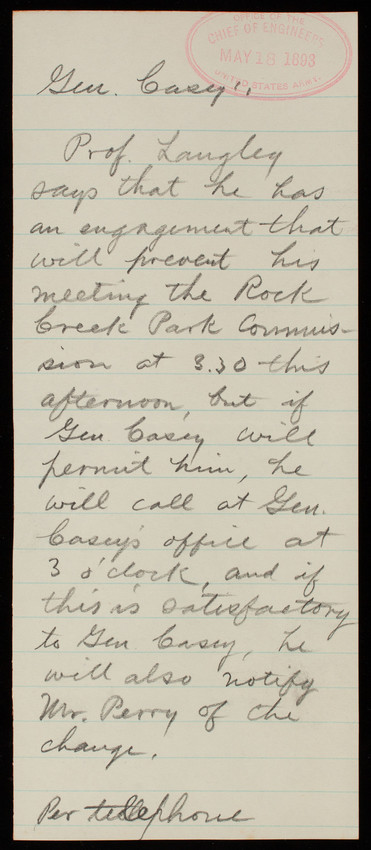 OFFICE OF THE
CHIEF OF ENGINEERS
MAY 18 1893
UNITED STATES ARMY.
Gen. Casey:
Prof. Langley
says that he has
an engagement that
will prevent his
meeting the Rock
Creek Park Commis-
sion at 3.30 this
afternoon, but if
Gen. Casey will
permit him, he
will call at Gen.
Casey's office at
3 o'clock, and if
this is satisfactory
to Gen. Casey, he
will also notify
Mr. Perry of the
change.
Per telephone